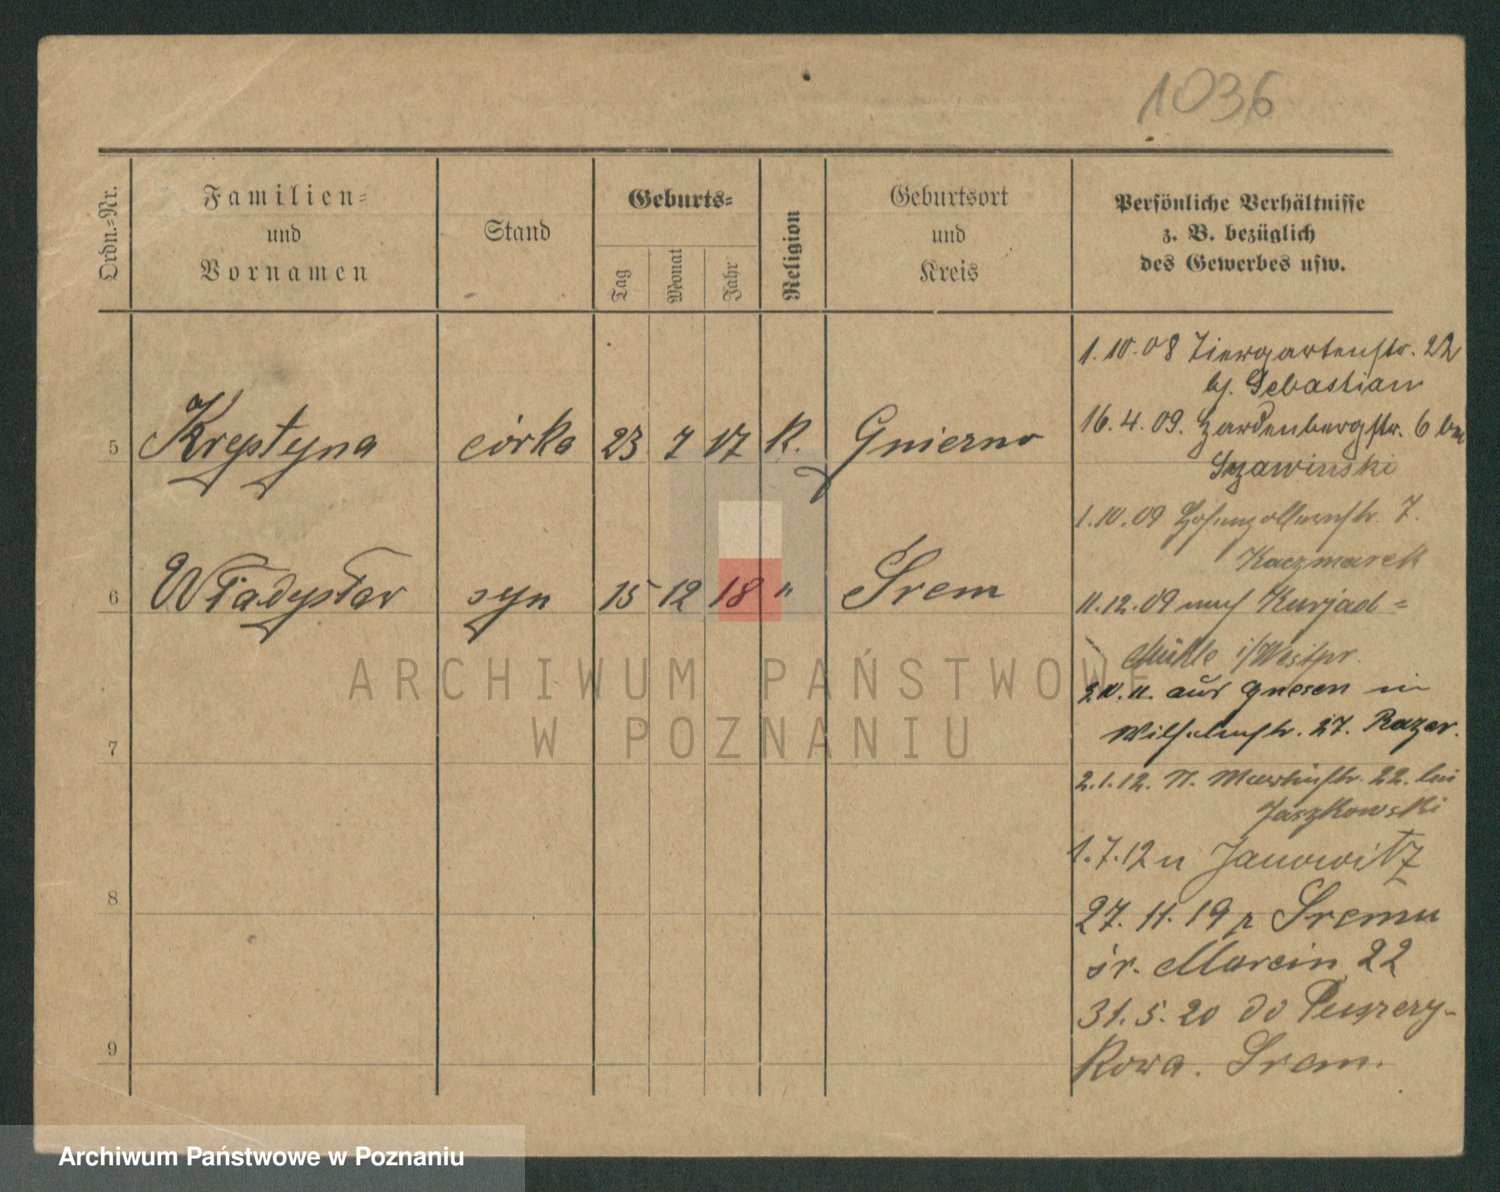 1036
Ordn.-Nr.
Familien-
und
Vornamen
Stand
Geburts-
Tag
Monat
Jahr
Religion
Geburtsort
und
Kreis
Persönliche Verhältnisse
z. B. bezüglich
des Gewerbes usw.
5 Krystyna córka 23 7 17 K. Gniezno
6 Władysław syn 15 12 18 " Śrem
7
8
9
1.10.08 Tiergartenstr. 22
bj. Sebastian
16.4.09. Hardenbergstr. 6 bei
Szawinski
1.10.09 Hohenzollernstr. 7.
Kaczmarek
11.12.09 nach Kurjad-
Mühle i/Westpr.
2.10.11. aus Gnesen in
Wilhelmstr. 27. Razer.
2.1.12. N. Martinstr. 22. bei
Jaszkowski
1.7.12 n Janowitz
27.11.19 z Śremu
św. Marcin 22
31.5.20 do
kowa. Śrem.
ARCHIWUM PAŃSTWOWE
W POZNANIU
Archiwum Państwowe w Poznaniu